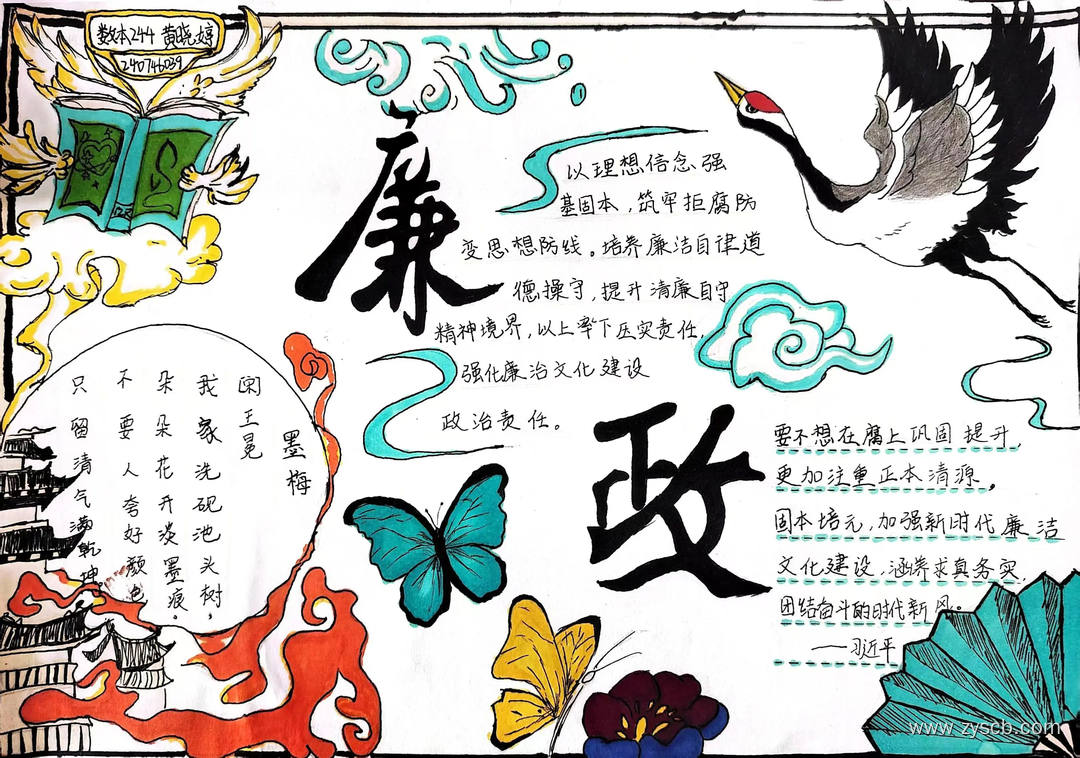 数本244 黄晓婷
240746039
廉
以理想信念强
基固本，筑牢拒腐防
变思想防线。培养廉洁自律道
德操守，提升清廉自守
精神境界，以上率下压实责任，
强化廉治文化建设
政治责任。
墨梅
王冕
我家洗砚池头树，
朵朵花开淡墨痕。
不要人夸好颜色
只留清气满乾坤
政
要不想在腐上巩固提升，
更加注重正本清源，
固本培元，加强新时代廉洁
文化建设，涵养求真务实，
团结奋斗的时代新风。
——习近平
www.zyscb.com